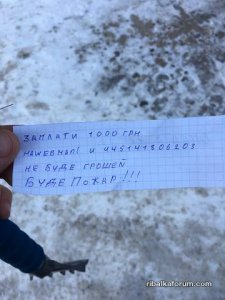 ЗАПЛАТИ 1000 ГРН
НА WEBMANI И 445141306203
НЕ БУДЕ ГРОШЕЙ
БУДЕ ПОЖАР!!!
ribalkaforum.com